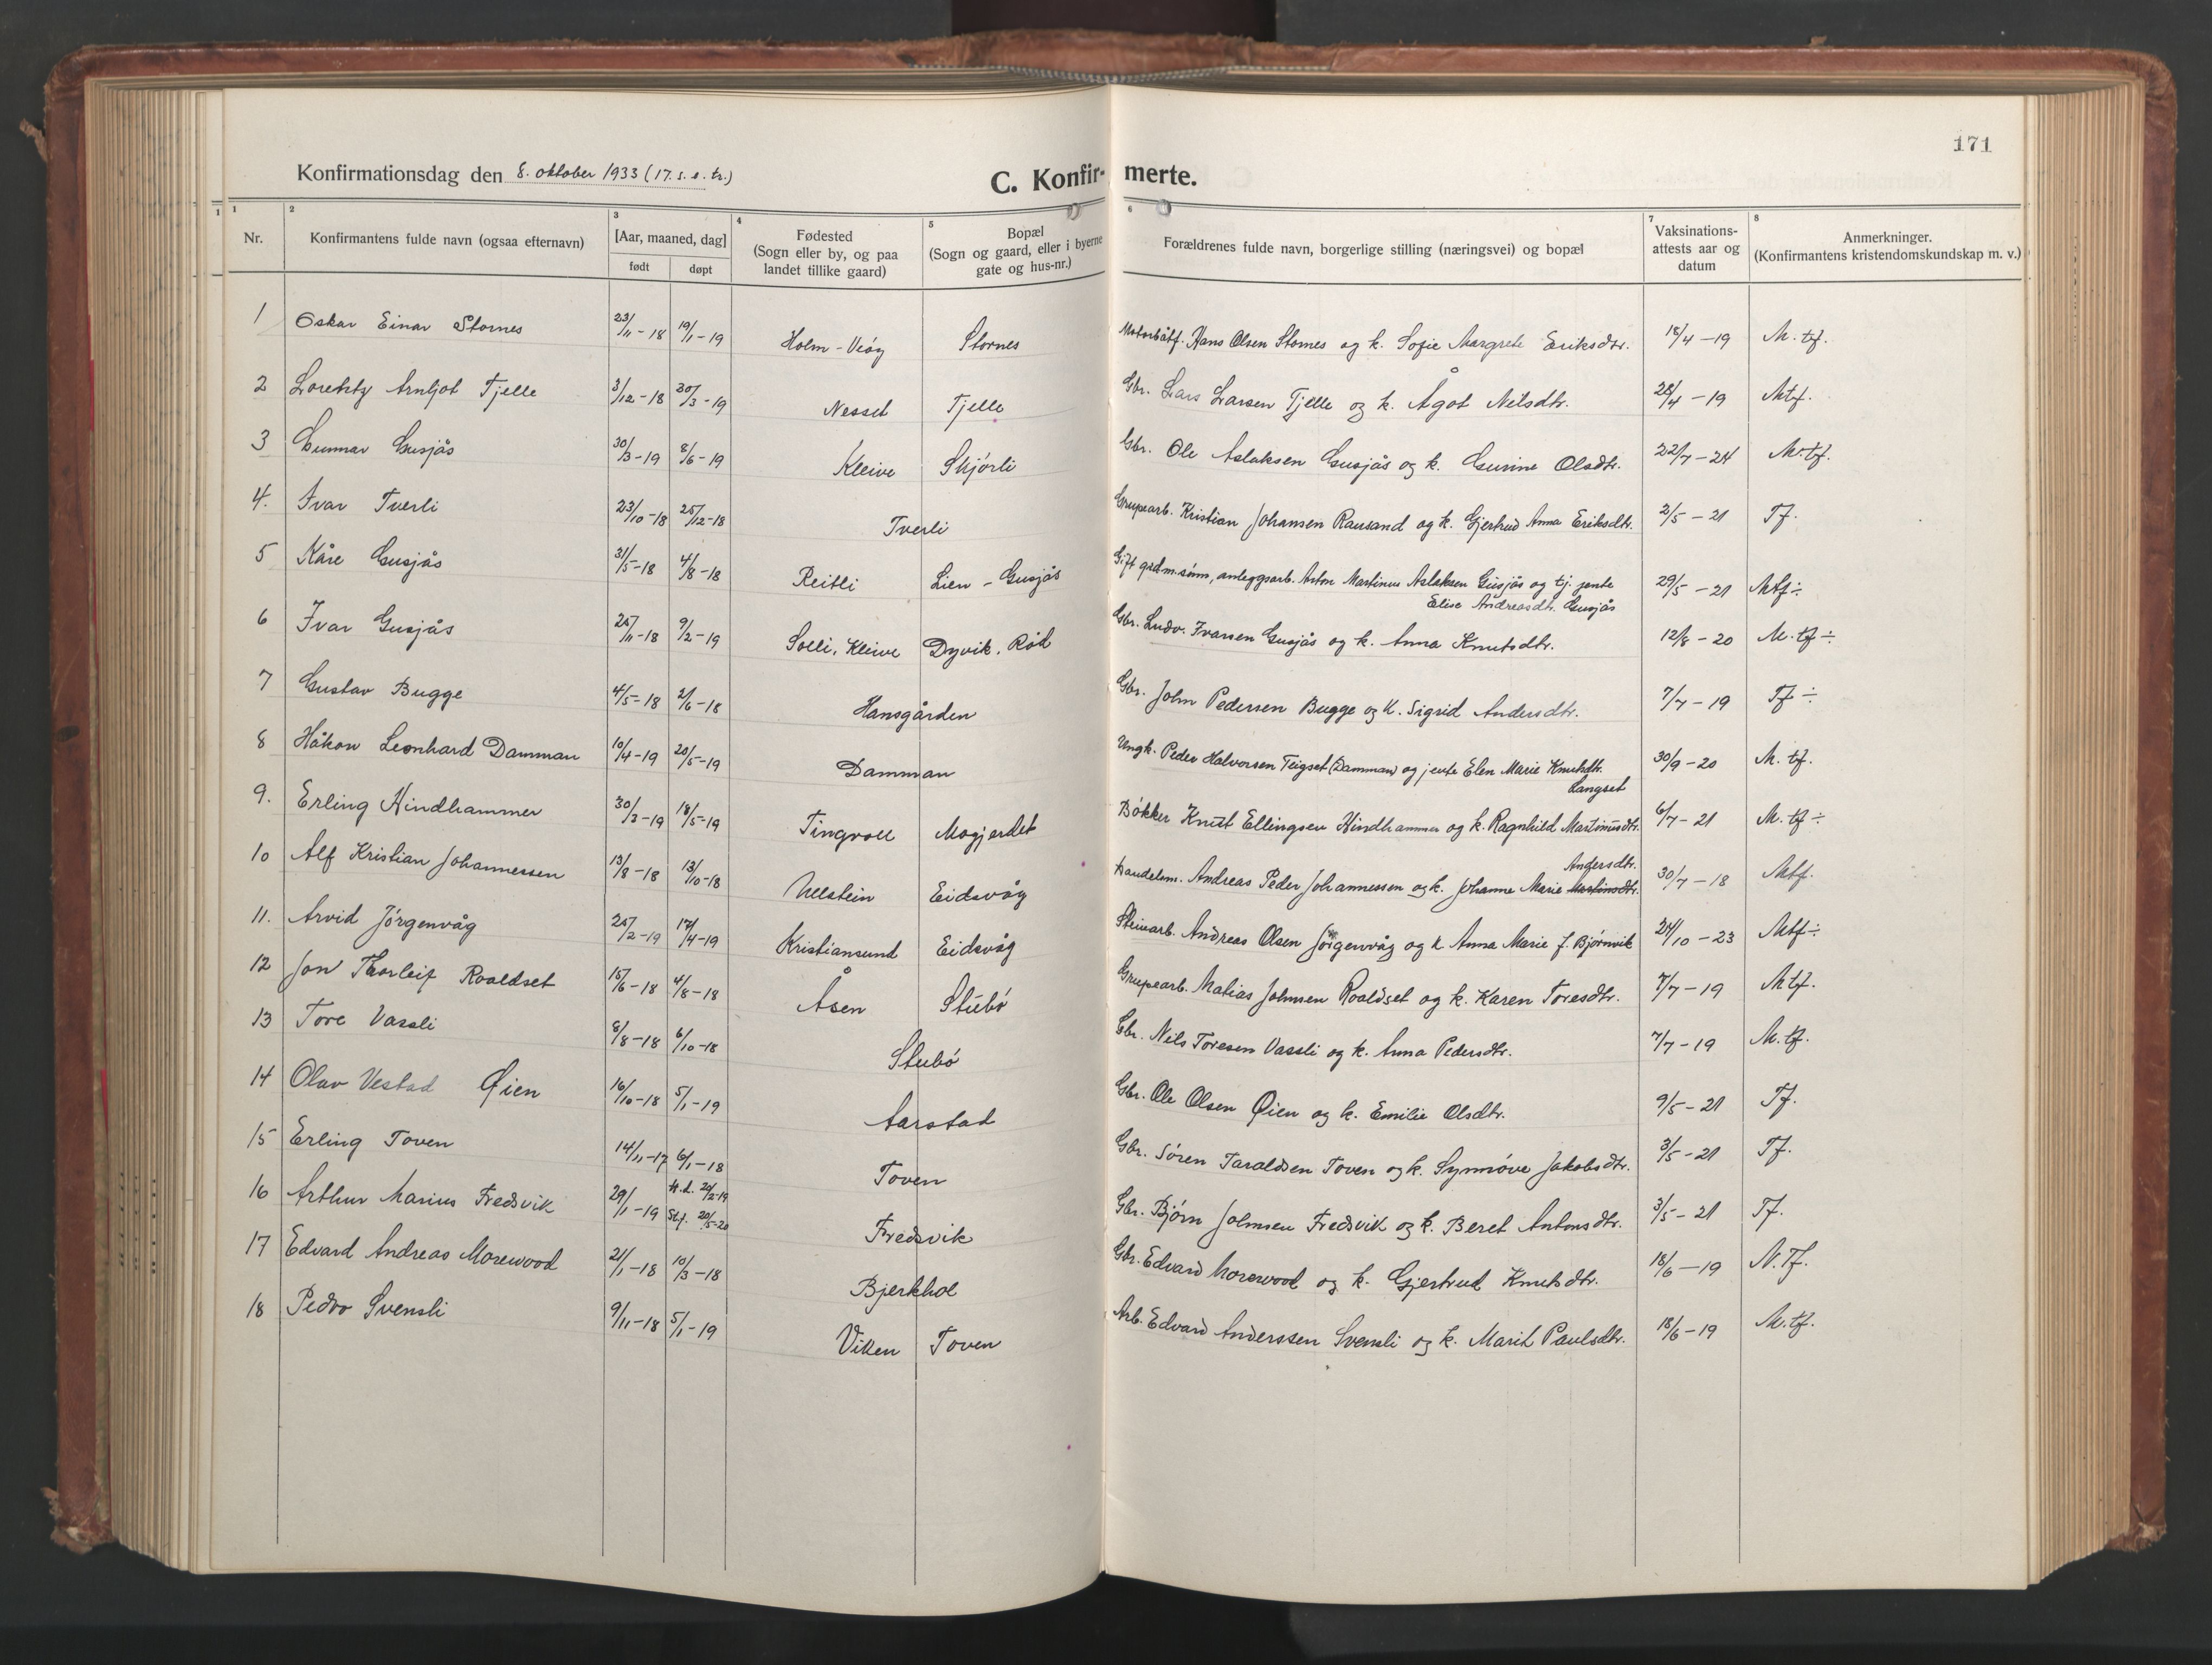 171
Konfirmationsdag den 8. oktober 1933 (17. s. e. tr.)
C. Konfir- merte.
1 1 2 3 4 5 6 7 8
Nr. Konfirmantens fulde navn (ogsaa efternavn) [Aar, maaned, dag] født døpt Fødested (Sogn eller by, og paa landet tillike gaard) Bopæl (Sogn og gaard, eller i byerne gate og hus-nr.) Forældrenes fulde navn, borgerlige stilling (næringsvei) og bopæl Vaksinations-attests aar og datum Anmerkninger. (Konfirmantens kristendomskundskap m. v.)
1 Oskar Einar Stornes 23/11-18 19/1-19 Holm-Veøy Stornes Motorbåtf. Hans Olsen Stornes og k. Sofie Margrete Eriksdtr. 18/4-19 M. tf.
2 Lorentz Arnljot Tjelle 3/12-18 30/3-19 Nesset Tjelle Gbr. Lars Larsen Tjelle og k. Ågot Nilsdtr. 28/4-19 Mtf.
3 Gunnar Gusjås 30/3-19 8/6-19 Kleive Skjørli Gbr. Ole Aslaksen Gusjås og k. Gurine Olsdtr. 22/7-24 M.tf.
4. Ivar Tverli 23/10-18 25/12-18 Tverli Grupearb. Kristian Johansen Rausand og k. Gjertrud Anna Eriksdtr. 2/5-21 Tf.
5 Kåre Gusjås 31/5-18 4/8-18 Reitli Lien - Gusjås Gift grdm.sønn, anleggsarb. Anton Martinus Aslaksen Gusjås og tj. jente
Elise Andreasdtr. Gusjås 29/5-21 Mtf ÷
6 Ivar Gusjås 25/11-18 9/2-19 Solli, Kleive Dyvik, Rød Gbr. Ludv. Ivarsen Gusjås og k. Anna Knutsdtr. 12/8-20 M. tf ÷
7 Gustav Bugge 4/5-18 2/6-18 Hansgården Gbr. John Pedersen Bugge og k. Sigrid Andersdtr. 7/7-19 Tf ÷
8 Håkon Leonhard Damman 10/4-19 20/5-19 Damman Ungk. Peder Halvorsen Teigset (Damman) og jente Elen Marie Knutsdtr.
Langset 30/9-20 M. tf.
9. Erling Hindhammer 30/3-19 18/5-19 Tingvoll Mogjerdet Bøkker Knut Ellingsen Hindhammer og k. Ragnhild Martinusdtr. 6/7-21 M. tf ÷
10 Alf Kristian Johannessen 13/8-18 13/10-18 Ullstein Eidsvåg Handelsm. Andreas Peder Johannessen og k. Johanne Marie Martinsdtr. Andersdtr. 30/7-18 Mtf.
11. Arvid Jørgenvåg 25/2-19 17/4-19 Kristiansund Eidsvåg Steinarb. Andreas Olsen Jørgenvåg og k Anna Marie f. Bjørnvik 24/10-23 Mtf ÷
12 Jon Thorleif Roaldset 15/6-18 4/8-18 Åsen Stubø Grupearb. Matias Johnsen Roaldset og k. Karen Toresdtr. 7/7-19 M tf.
13 Tore Vassli 8/8-18 6/10-18 Stubø Gbr. Nils Toresen Vassli og k. Anna Pedersdtr. 7/7-19 M. tf.
14 Olav Vestad Øien 16/10-18 5/1-19 Aarstad Gbr. Ole Olsen Øien og k. Emilie Olsdtr. 9/5-21 Tf.
15 Erling Toven 14/11-17 6/1-18 Toven Gbr. Søren Taraldsen Toven og k. Synnøve Jakobsdtr. 3/5-21 Tf.
16 Arthur Marius Fredsvik 29/1-19 H.d. 24/2-19 Stf. 20/5-20 Fredsvik Gbr. Bjørn Johnsen Fredsvik og k. Beret Antonsdtr. 3/5-21 Tf.
17 Edvard Andreas Morewood 21/1-18 10/3-18 Bjerkhol Gbr. Edvard Morewood og k. Gjertrud Knutsdtr. 18/6-19 N. Tf.
18 Pedro Svensli 9/11-18 5/1-19 Viken Toven Arb. Edvard Anderssen Svensli og k. Marit Paulsdtr. 18/6-19 M. tf.